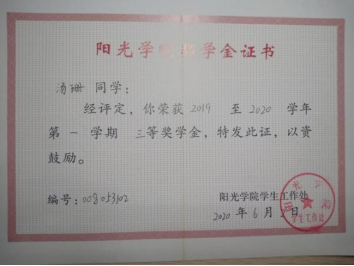 阳光学院奖学金证书
汤珊 同学：
经评定，你荣获 2019 至 2020 学年
第 一 学期 三等奖学金，特发此证，以资
鼓励。
编号：
阳光学院学生工作处
2020 年 6 月 日